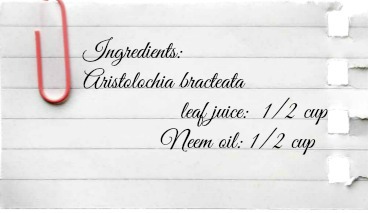 Ingredients:
Aristolochia bracteata
leaf juice: 1/2 cup
Neem oil: 1/2 cup